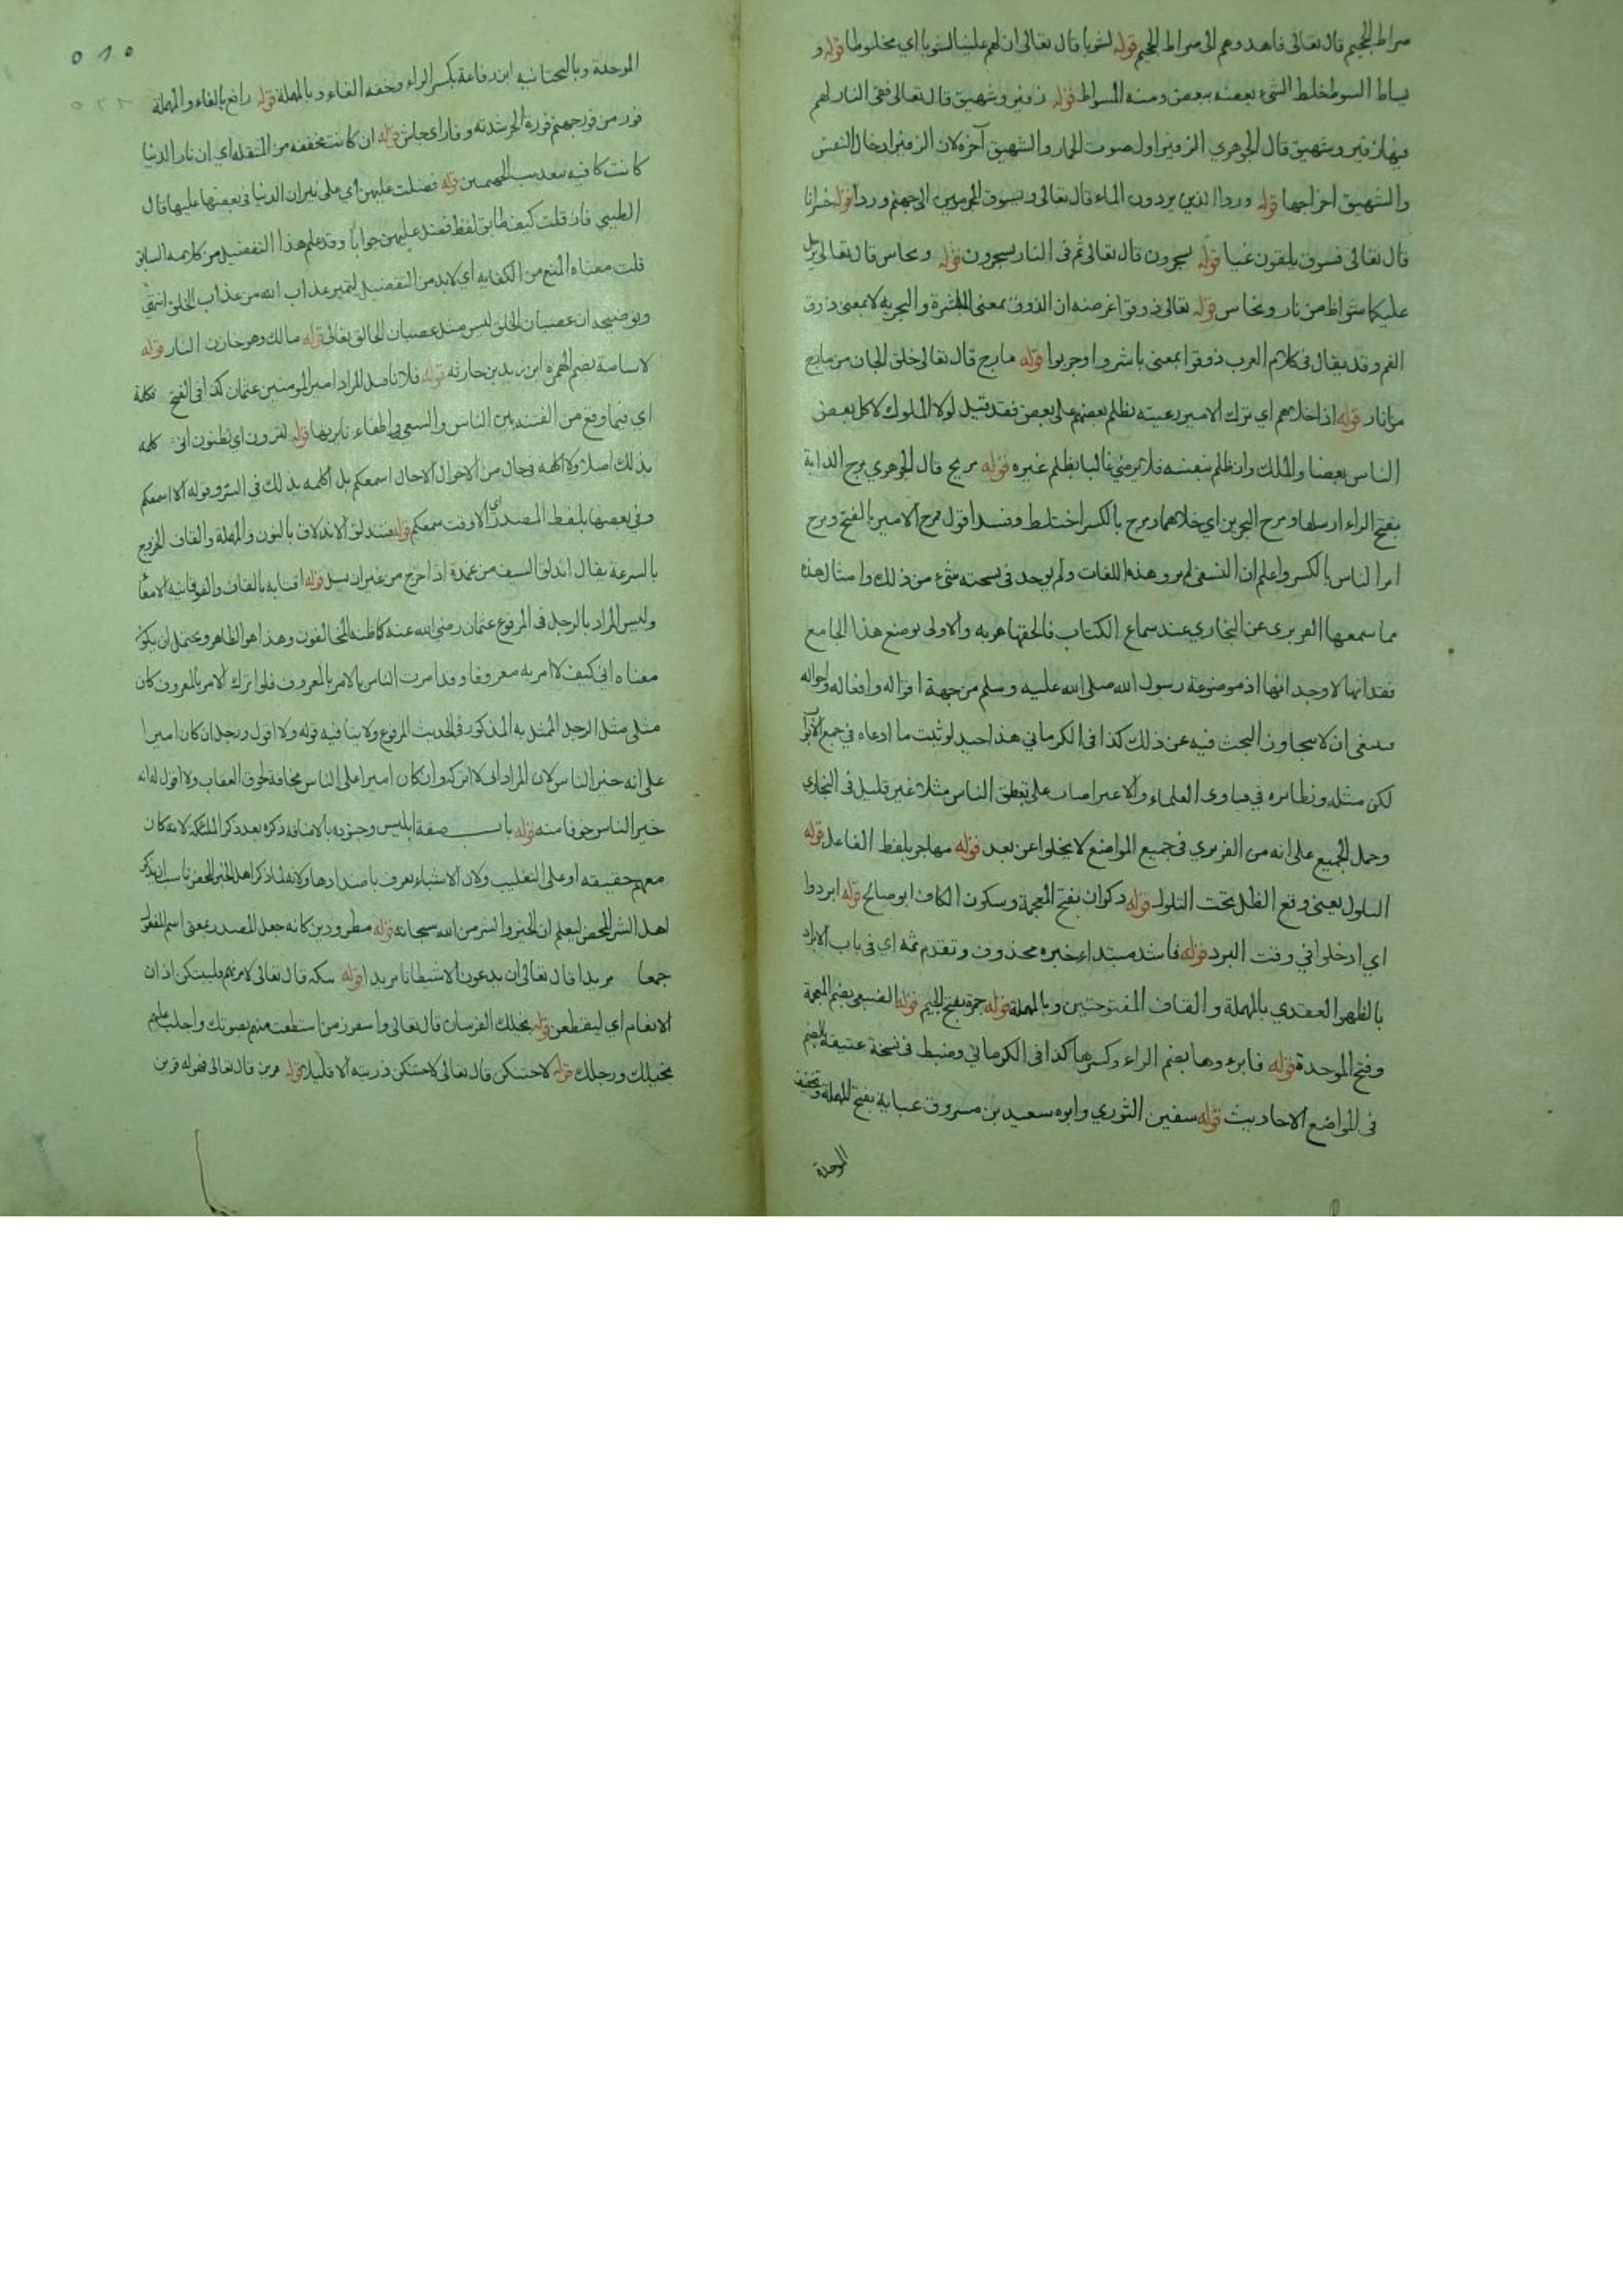 صراط الجحيم قال تعالى فاهدوهم الى صراط الجحيم قوله لشوبا قال تعالى ان لهم عليها لشوبا اي مخلوطا قوله و
يساط السوط خلط الشيء بعضه ببعض ومنه المسواط قوله زفير وشهيق قال تعالى ففي النار لهم
فيها زفير وشهيق قال الجوهري الزفير اول صوت الحمار والشهيق آخره لان الزفير ادخال النفس
والشهيق اخراجها قوله وردا الذين يردون الماء قال تعالى ونسوق المجرمين الى جهنم وردا قوله خسرانا
قال تعالى فسوف يلقون غيا قوله يسجرون قال تعالى ثم في النار يسجرون قوله ونحاس قال تعالى يرسل
عليكما شواظ من نار ونحاس قوله تعالى ذوقوا غرضه ان الذوق بمعنى المباشرة والتجربه لا بمعنى ذوق
الفم وقد يقال في كلام العرب ذوقوا بمعنى باشروا وجربوا قوله مارج قال تعالى خلق الجان من مارج
من نار قوله اذا خلاهم اي ترك الامير رعيته يظلم بعضهم على بعض فقد قيل لولا الملوك لاكل بعض
الناس بعضا والملك وان ظلم بنفسه فلا يرضى غالبا بظلم غيره قوله مريج قال الجوهري مرج الدابة
بفتح الراء ارسلها ومرج البحرين اي خلاهما ومرج بالكسر اختلط وفسد اقول مرج الامير بالفتح ومرج
امر الناس بالكسر واعلم ان النسفي لم يرو هذه اللغات ولم يوجد في نسخته شيء من ذلك وامثال هذه
مما سمعها الفربري عن البخاري عند سماع الكتاب فالحقها هو به والاولى بوضع هذا الجامع
فقدانها لا وجدانها اذ موضوعة رسول الله صلى الله عليه وسلم من جهة اقواله وافعاله واحواله
فينبغي ان لا يتجاوز البحث فيه عن ذلك كذا في الكرماني هذا جيد لو ثبت ما ادعاه في جميع الابواب
لكن مثله ونظايره في فتاوى العلماء والاعتراضات على بعض الناس مثلا غير قليل في البخاري
وحمل الجميع على انه من الفربري في جميع المواضع لا يخلوا عن بعد قوله مهاجر بلفظ الفاعل قوله
التلول يعني وقع الظل تحت التلول قوله ذكوان بفتح المعجمة وسكون الكاف ابو صالح قوله ابردوا
اي ادخلوا في وقت البرد قوله فاشد مبتداء خبره محذوف وتقدم ثمه اي في باب الابراد
بالظهر العقدي بالمهملة والقاف المفتوحتين وبالمهملة قوله جمرة بفتح الجيم قوله الضبعي بضم المعجمة
وفتح الموحدة قوله فابردوها بضم الراء وكسرها كذا في الكرماني وضبط في نسخة عتيقة بالضم
في المواضع الاحاديث قوله سفين الثوري وابوه سعيد بن مسروق عباية بفتح المهملة وتخفيف
الموحدة
٥١٥
الموحدة وبالتحتانيه ابن رفاعة بكسر الراء وخفه الفاء وبالمهملة قوله رافع بالفاء والمهملة
فور من فور جهنم فورة الحر شدته وفار اي جاش قوله ان كانت مخففه من المثقله اي ان نار الدنيا
كانت كافيه قوله فضلت عليهن اي على نيران الدنيا في بعضها عليها قال
الطيبي فان قلت كيف طابق لفظ فضلت عليهن جوابا وقد علم هذا التفضيل من كلامه السابق
قلت معناه المنع من الكفايه اي لابد من التفضيل ليتميز عذاب الله من عذاب الخلق انتهى
وتوضيحه ان عصيان الخلق ليس مثل عصيان الخالق تعالى قوله مالك وهو خازن النار قوله
لاسامة بضم الهمزة ابن زيد بن حارثه قوله فلانا قيل المراد امير المومنين عثمان كذا في الفتح تكلمة
اي فيما وقع من الفتنه بين الناس والسعي واطفاء نايرتها قوله لترون اي تظنون اني كلمه
بذلك اصلا ولا اكلمه في حال من الاحوال الا حال اسمعكم بل اكلمه بذلك في السر وقوله الا اسمعكم
وفي بعضها بلفظ المصدر اي الا وقت سمعكم قوله فتندلق الاندلاق بالنون والمهملة والقاف الخروج
بالسرعة يقال اندلق السيف من غمده اذا خرج من غير ان يسل قوله اقتابه بالقاف والفوقانيه الامعا
وليس المراد بالرجل في المرفوع عثمان رضي الله عنه كما ظنه المخالفون وهذا هو الظاهر ويحتمل ان يكون
معناه اني كيف لا امر به معروفا وقد امرت الناس بالامر بالمعروف فلو اترك الامر بالمعروف كان
مثلي مثل الرجل الممثل به المذكور في الحديث المرفوع ولا ينافيه قوله ولا اقول لرجل ان كان اميرا
على انه خير الناس لان المراد اني لا اتركه وان كان اميرا على الناس مخافة لحوق العقاب ولا اقول له انه
خير الناس خوفا منه قوله باب صفة ابليس وجنوده بالاضافه ذكره بعد ذكر الملئكة لانه كان
معهم حقيقه او على التغليب ولان الاشياء تعرف باضدادها ولانه لما ذكر اهل الخير المحض ناسب ان يذكر
اهل الشر المحض ليعلم ان الخير والشر من الله سبحانه قوله مطرودين كانه جعل المصدر بمعنى اسم المفعول
جمعا مريدا قال تعالى ان يدعون الا شيطانا مريدا قوله بتكه قال تعالى لامرنهم فليبتكن اذان
الانعام اي ليقطعن قوله بخيلك الفرسان قال تعالى واستفزز من استطعت منهم بصوتك واجلب عليهم
بخيلك ورجلك قوله لاحتنكن قال تعالى لاحتنكن ذريته الا قليلا قوله قرين قال تعالى فهو له قرين